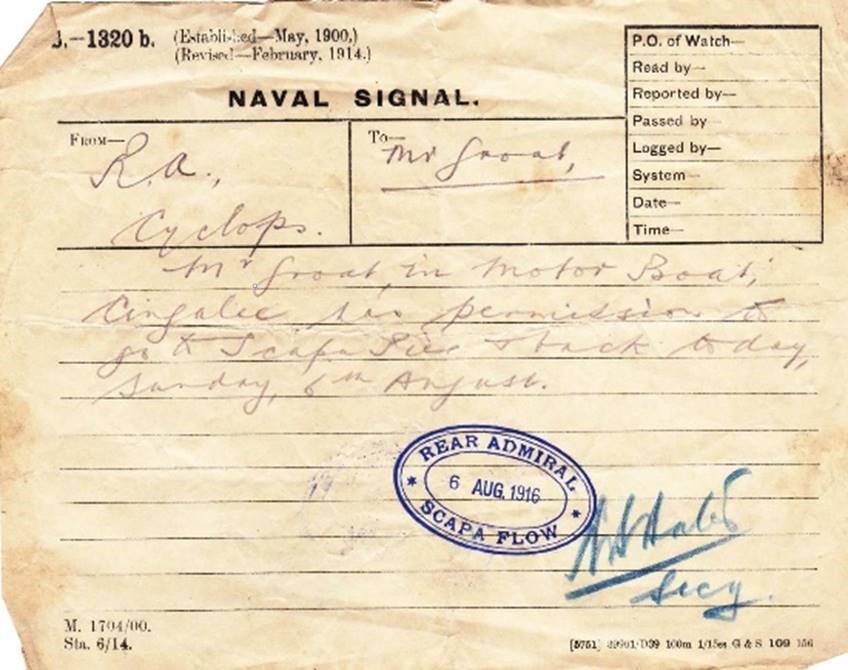 S.—1320 b. (Established—May, 1900.)
(Revised—February, 1914.)
NAVAL SIGNAL.
P.O. of Watch—
Read by—
Reported by—
Passed by—
Logged by—
System—
Date—
Time—
From—
R.A.,
Cyclops.
To—
Mr Groat,
Mr Groat, in Motor Boat,
Cingalee has permission to
go to Scapa Pier & back today,
Sunday, 6th August.
REAR ADMIRAL
6 AUG. 1916
SCAPA FLOW
Secy.
M. 1704/00.
Sta. 6/14.
[5751] 39901/D39 100m 1/15 G & S 109 156